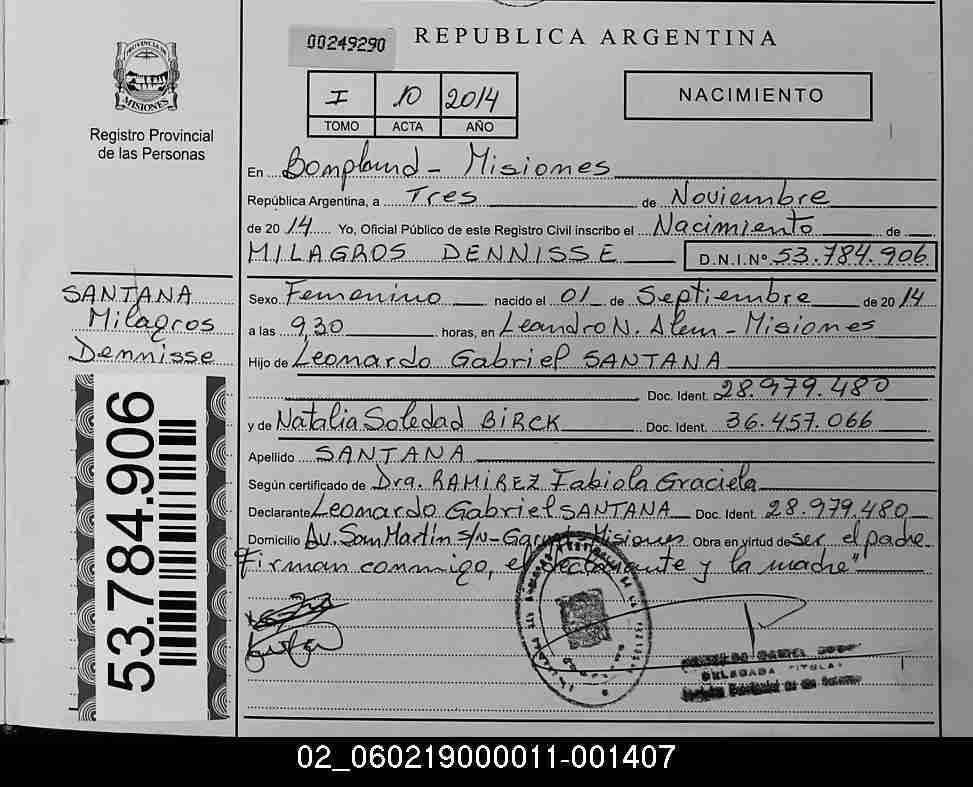 00249290
REPUBLICA ARGENTINA
PROVINCIA DE
MISIONES
Registro Provincial
de las Personas
I 10 2014
TOMO ACTA AÑO
NACIMIENTO
En Bompland - Misiones
República Argentina, a Tres de Noviembre
de 2014 Yo, Oficial Público de este Registro Civil inscribo el Nacimiento de
MILAGROS DENNISSE D.N.I.Nº 53.784.906
SANTANA
Milagros
Dennisse
53.784.906
Sexo Femenino nacido el 01 de Septiembre de 2014
a las 9,30 horas, en Leandro N. Alem - Misiones
Hijo de Leonardo Gabriel SANTANA
Doc. Ident. 28.979.480
y de Natalia Soledad BIRCK Doc. Ident. 36.457.066
Apellido SANTANA
Según certificado de Dra. RAMIREZ Fabiola Graciela
Declarante Leonardo Gabriel SANTANA Doc. Ident. 28.979.480
Domicilio Av. San Martín S/N - Misiones Obra en virtud de ser el padre
Firman conmigo, el declarante y la madre
DELEGADA TITULAR
02_060219000011-001407